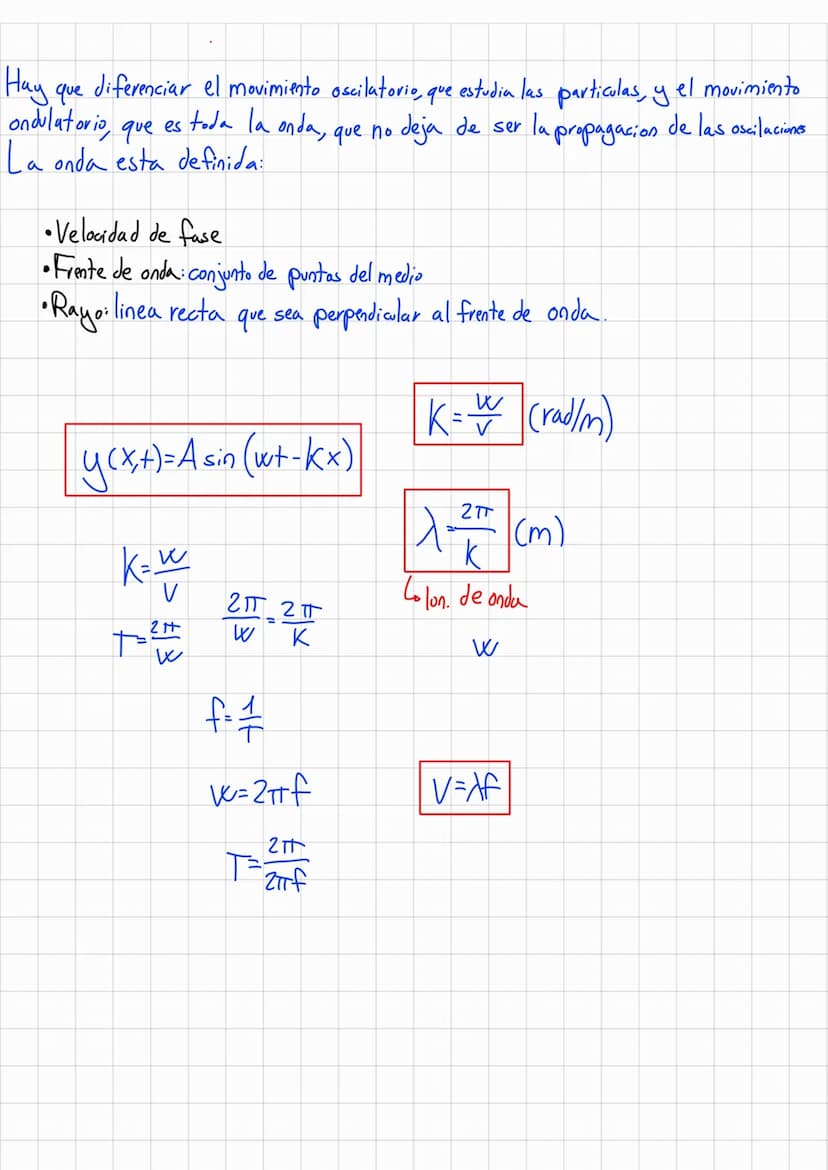 Hay que diferenciar el movimiento oscilatorio, que estudia las particulas, y el movimiento
ondulatorio, que es toda la onda, que no deja de ser la propagacion de las oscilaciones
La onda esta definida:
• Velocidad de fase
• Frente de onda: conjunto de puntos del medio
• Rayo: linea recta que sea perpendicular al frente de onda.
K = w/v (rad/m)
y(x,t) = A sin (wt - kx)
λ = 2π/k (m)
↳ lon. de onda
K = w/v
2π/w = 2π/K
T = 2π/w
w
f = 1/T
w = 2πf
V = λf
T = 2π/2πf